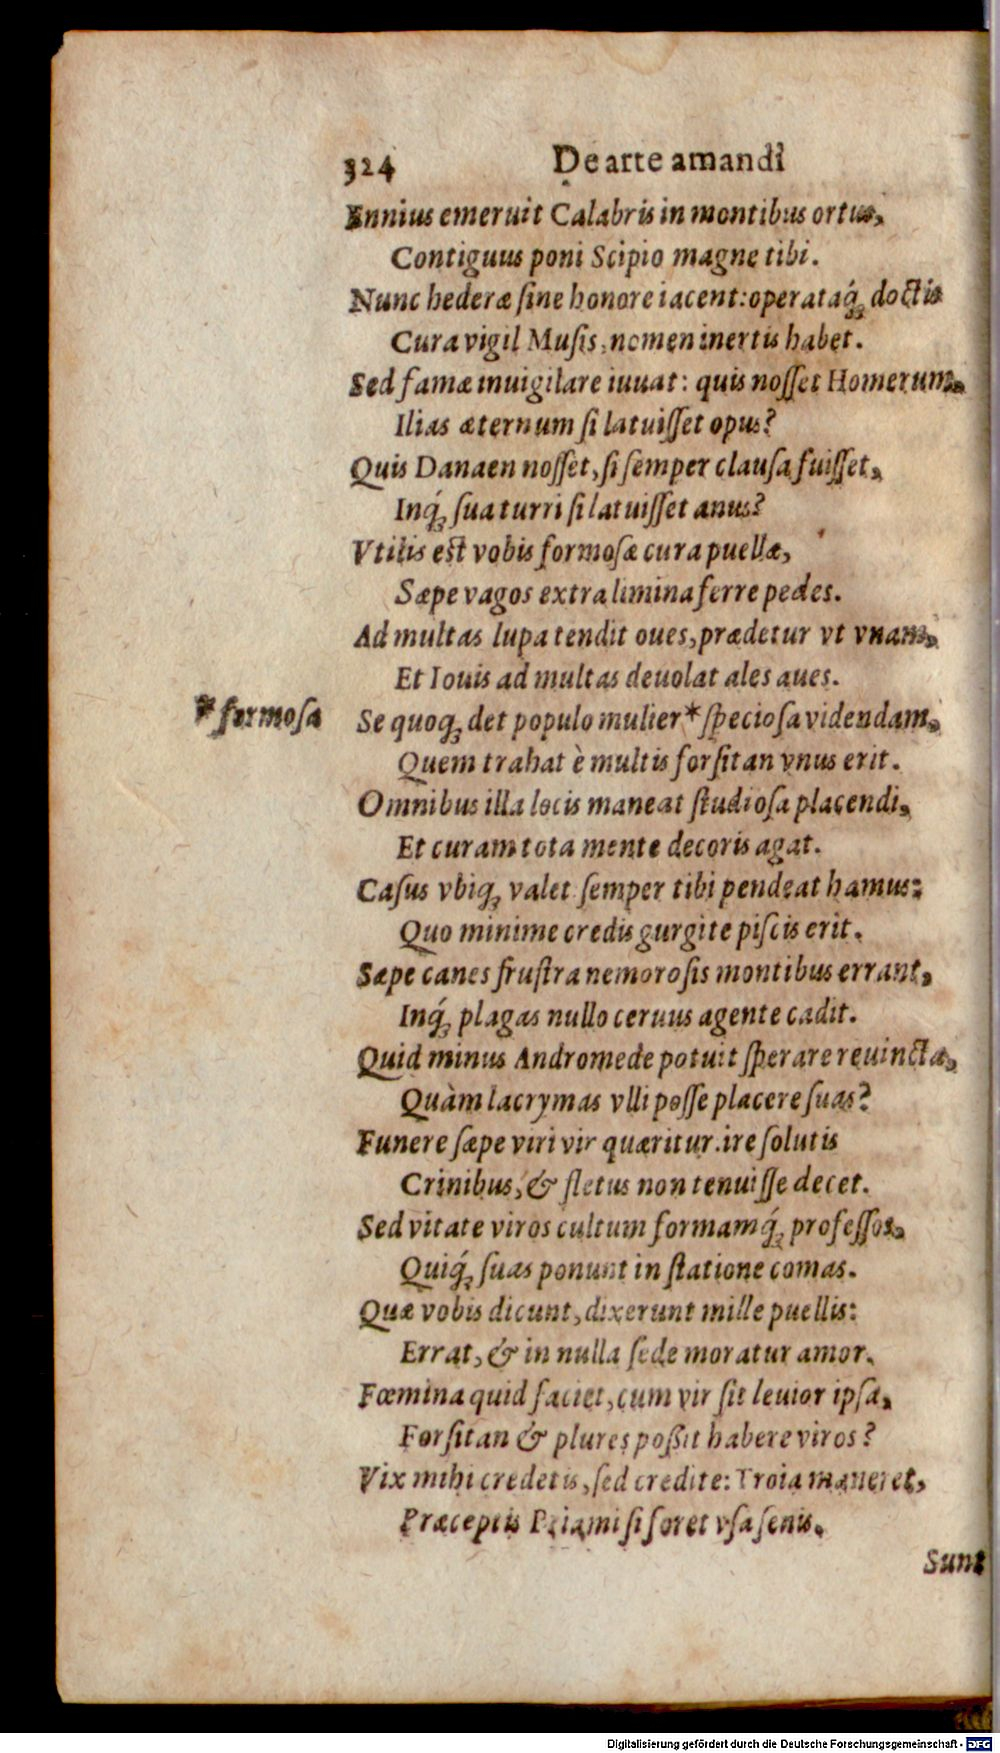 324 De arte amandi
Ennius emeruit Calabris in montibus ortus,
Contiguus poni Scipio magne tibi.
Nunc hederæ ſine honore iacent: operataq́; doctis
Cura vigil Muſis, nomen inertis habet.
Sed famæ inuigilare iuuat: quis noſſet Homerum,
Ilias æternum ſi latuiſſet opus?
Quis Danaen noſſet, ſi ſemper clauſa fuiſſet,
Inq́; ſua turri ſi latuiſſet anus?
Vtilis eſt vobis formoſæ cura puellæ,
Sæpe vagos extra limina ferre pedes.
Ad multas lupa tendit oues, prædetur vt vnam,
Et Iouis ad multas deuolat ales aues.
* formoſa
Se quoq; det populo mulier * ſpecioſa videndam,
Quem trahat è multis forſitan vnus erit.
Omnibus illa locis maneat ſtudioſa placendi,
Et curam tota mente decoris agat.
Caſus vbiq; valet ſemper tibi pendeat hamus:
Quo minime credis gurgite piſcis erit.
Sæpe canes fruſtra nemoroſis montibus errant,
Inq́; plagas nullo ceruus agente cadit.
Quid minus Andromede potuit ſperare reuincta,
Quàm lacrymas vlli poſſe placere ſuas?
Funere ſæpe viri vir quæritur. ire ſolutis
Crinibus, & fletus non tenuiſſe decet.
Sed vitate viros cultum formamq́; profeſſos,
Quiq́; ſuas ponunt in ſtatione comas.
Quæ vobis dicunt, dixerunt mille puellis:
Errat, & in nulla ſede moratur amor.
Fœmina quid faciet, cum vir ſit leuior ipſa,
Forſitan & plures poßit habere viros?
Vix mihi credetis, ſed credite: Troia maneret,
Præceptis Priami ſi foret vſa ſenis.
Sunt
Digitalisierung gefördert durch die Deutsche Forschungsgemeinschaft - DFG